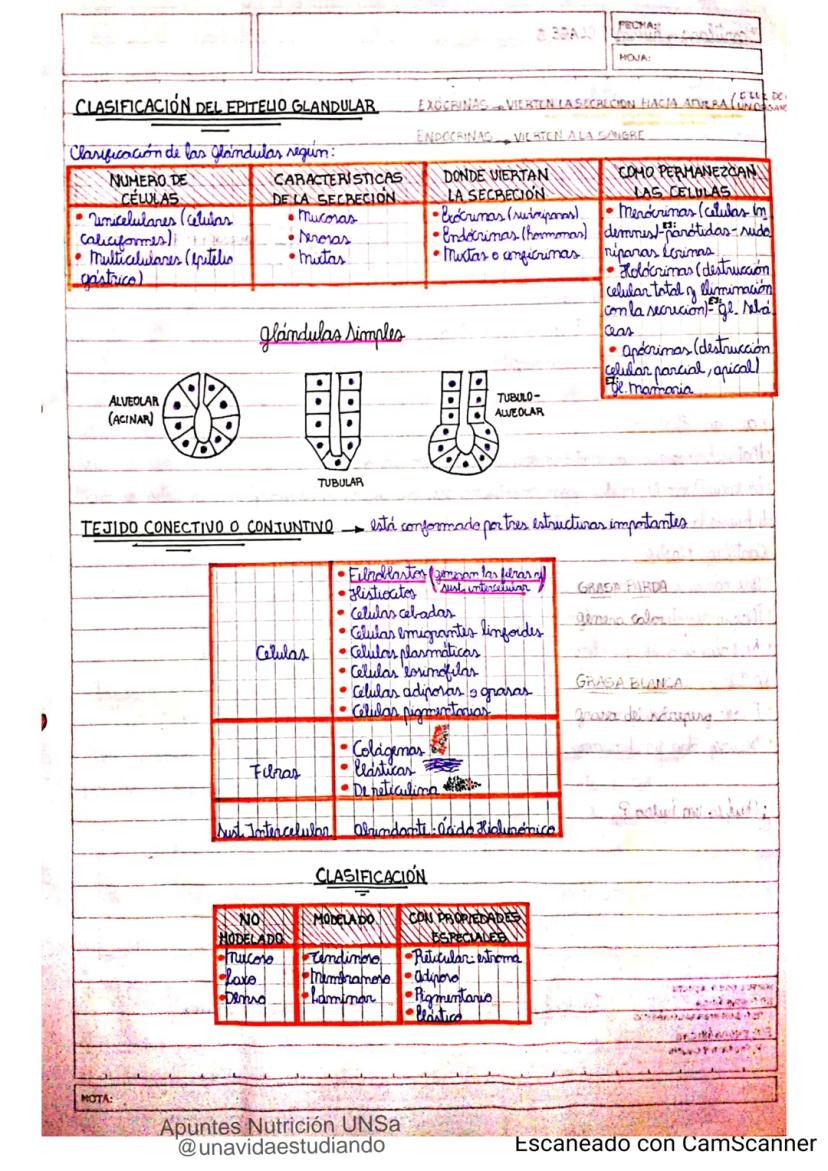 FECHA:
HOJA:
CLASIFICACIÓN DEL EPITELIO GLANDULAR
EXÓCRINAS → VIERTEN LA SECRECION HACIA AFUERA (
ENDOCRINAS → VIERTEN A LA SANGRE
Clasificación de las glándulas según:
NUMERO DE CÉLULAS
• Unicelulares (células
caliciformes)
• Multicelulares (epitelio
gástrico)
CARACTERISTICAS
DE LA SECRECIÓN
• Mucosas
• Serosas
• Mixtas
DONDE VIERTAN
LA SECRECIÓN
• Exócrinas (sudoríparas)
• Endócrinas (hormonas)
• Mixtas o anficrinas
COMO PERMANEZCAN
LAS CELULAS
• Merócrinas (células in
demnes) EJ: parótidas - sudo
ríparas écrinas
• Holócrinas (destrucción
celular total y eliminación
con la secreción) EJ: gl. sebá
ceas
• apócrinas (destrucción
celular parcial, apical)
EJ: gl. mamaria
glándulas simples
ALVEOLAR
(ACINAR)
TUBULAR
TUBULO-
ALVEOLAR
TEJIDO CONECTIVO O CONJUNTIVO → está conformado por tres estructuras importantes
Celulas
• Fibroblastos (generan las fibras y
sust. intercelular)
• Histiocitos
• Celulas cebadas
• Celulas emigrantes linfoides
• Celulas plasmáticas
• Celulas eosinófilas
• Celulas adiposas o grasas
• Celulas pigmentarias
Fibras
• Colágenas
• Elásticas
• De reticulina
Sust. Intercelular
Abundante: ácido Hialurónico
GRASA PARDA
genera calor
GRASA BLANCA
CLASIFICACIÓN
NO
MODELADO
• Mucoso
• Laxo
• Denso
MODELADO
• Tendinoso
• Membranoso
• Laminar
CON PROPIEDADES
ESPECIALES
• Reticular: estroma
• adiposo
• Pigmentario
• Elástico
NOTA:
Apuntes Nutrición UNSa
@unavidaestudiando
Escaneado con CamScanner